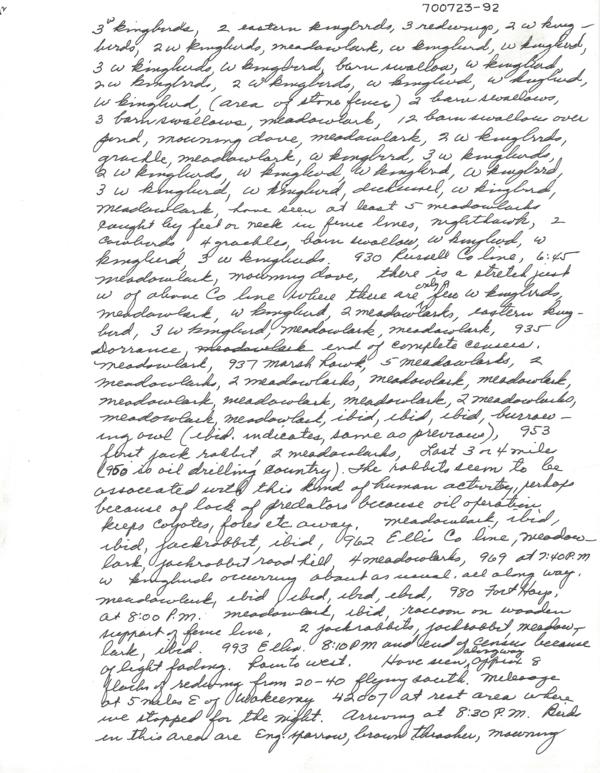 700723-92
3 w kingbirds, 2 eastern kingbirds, 3 redwings, 2 w king-
birds, 2 w kingbirds, meadowlark, w kingbird, w kingbird,
3 w kingbirds, w kingbird, barn swallow, w kingbird,
2 w kingbirds, 2 w kingbirds, w kingbird, w kingbird,
w kingbird, (area of stone fence) 2 barn swallows,
3 barn swallows, meadowlark, 12 barn swallow over
pond, mourning dove, meadowlark, 2 w kingbirds,
grackle, meadowlark, w kingbird, 3 w kingbirds,
2 w kingbirds, w kingbird, w kingbird, w kingbird,
3 w kingbird, w kingbird, dickcissel, w kingbird,
meadowlark, have seen at least 5 meadowlarks
caught by feet or neck in fence lines, nighthawk, 2
cowbirds, 4 grackles, barn swallow, w kingbird, w
kingbird, 3 w kingbirds. 930 Russell Co line, 6:45
meadowlark, mourning dove, there is a stretch just
w of above Co line where there are only few w kingbirds,
meadowlark, w kingbird, 2 meadowlarks, eastern king-
bird, 3 w kingbird, meadowlark, meadowlark, 935
Dorrance, meadowlark end of complete census.
meadowlark, 937 marsh hawk, 5 meadowlarks, 2
meadowlarks, 2 meadowlarks, meadowlark, meadowlark,
meadowlark, meadowlark, meadowlark, 2 meadowlarks,
meadowlark, meadowlark, ibid, ibid, ibid, burrow-
ing owl (ibid. indicates, same as previous), 953
first jack rabbit, 2 meadowlarks, Last 3 or 4 mile
(950 is oil drilling country). The rabbits seem to be
associated with this kind of human activity, perhaps
because of lack of predators because oil operation
keeps coyotes, foxes etc away. meadowlark, ibid,
ibid, jackrabbit, ibid, 962 Ellis Co line, meadow-
lark, jackrabbit road kill, 4 meadowlarks, 969 at 7:40 P.M
w kingbirds occurring about as usual all along way.
meadowlark, ibid, ibid, ibid, ibid, 980 Fort Hays,
at 8:00 P.M. meadowlark, ibid, raccoon on wooden
support of fence line, 2 jackrabbits, jackrabbit, meadow-
lark, ibid. 993 Ellis. 8:10 PM and end of census because
of light fading. Have seen, along way approx 8
flocks of redwing from 20-40 flying south. Mileage
at 5 miles E of Wakeeney 42,007 at rest area where
we stopped for the night. Arriving at 8:30 P.M. Birds
in this area are Eng. sparrow, brown thrasher, mourning